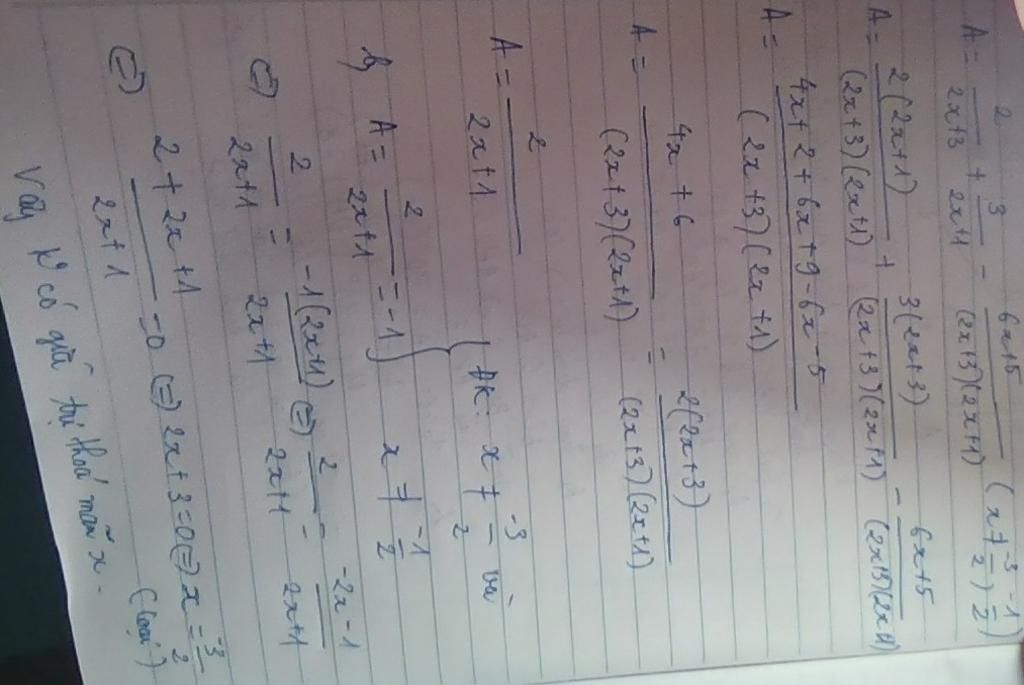 A = 2/(2x+3) + 3/(2x+1) - (6x+5)/((2x+3)(2x+1)) (x ≠ -3/2, -1/2)
A = 2(2x+1)/((2x+3)(2x+1)) + 3(2x+3)/((2x+3)(2x+1)) - (6x+5)/((2x+3)(2x+1))
A = (4x+2+6x+9-6x-5)/((2x+3)(2x+1))
A = (4x+6)/((2x+3)(2x+1)) = 2(2x+3)/((2x+3)(2x+1))
A = 2/(2x+1) ĐK: x ≠ -3/2 và x ≠ -1/2
b, A = 2/(2x+1) = -1)
(=) 2/(2x+1) = -1(2x+1)/(2x+1) (=) 2/(2x+1) = (-2x-1)/(2x+1)
(=) (2+2x+1)/(2x+1) =0 (=) 2x+3=0(=) x = -3/2 (loại)
Vậy k có giá trị thoả mãn x.